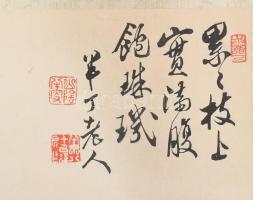 累々枝上
實滿腹
飽珠璣
半丁老人